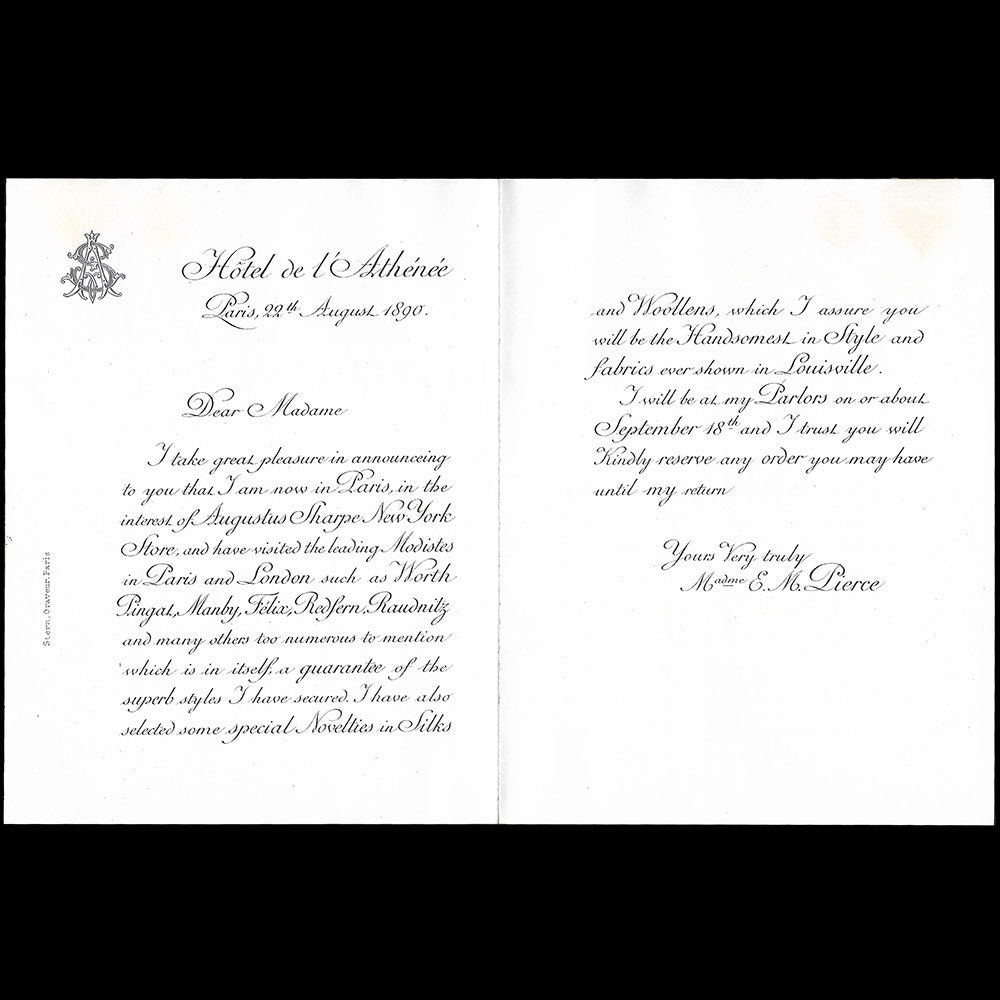 Hôtel de l'Athénée
Paris, 22th August 1890.
Dear Madame
I take great pleasure in announceing
to you that I am now in Paris, in the
interest of Augustus Sharpe New York
Store, and have visited the leading Modistes
in Paris and London such as Worth
Pingat, Manby, Félix, Redfern, Raudnitz
and many others too numerous to mention
which is in itself, a guarantee of the
superb styles I have secured. I have also
selected some special Novelties in Silks
Stern, Graveur, Paris
and Woollens, which I assure you
will be the Handsomest in Style and
fabrics ever shown in Louisville.
I will be at my Parlors on or about
September 18th and I trust you will
Kindly reserve any order you may have
until my return
Yours Very truly
Madme E. M. Pierce